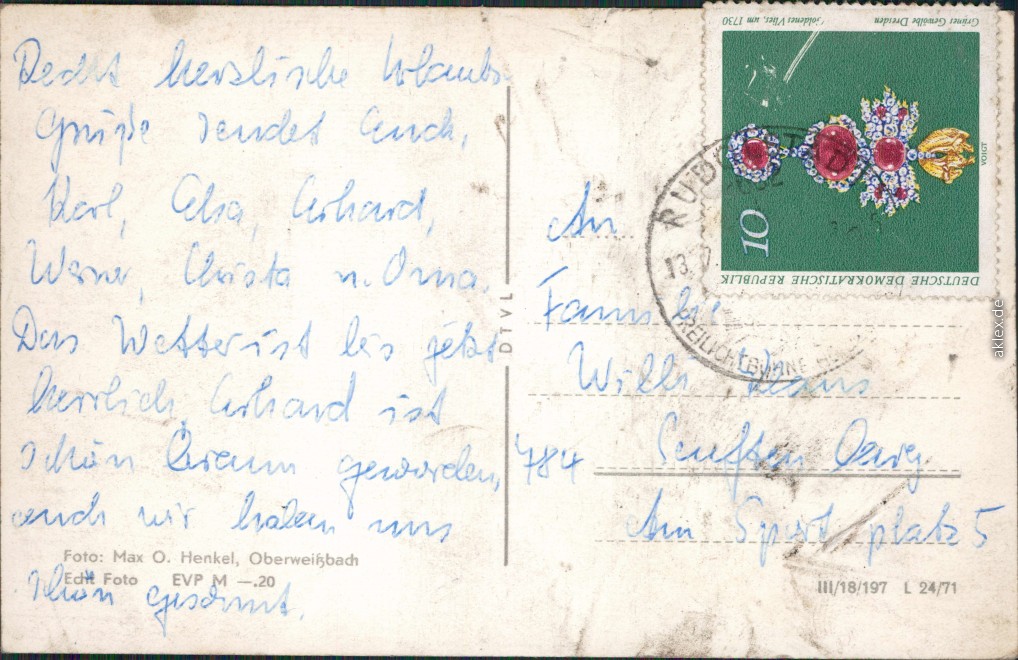 Recht herzlische Urlaubs
Grüße sendet Euch,
Karl, Elsa, Erhard,
Werner, Christa u. Oma.
Das Wetter ist bis jetzt
herrlich, Erhard ist
schön braun geworden,
auch wir haben uns
schön gesonnt.
Foto: Max O. Henkel, Oberweißbach
Echt Foto EVP M —.20
DTVL
An
Familie
Willi
784 Senftenberg
Am Sportplatz 5
III/18/197 L 24/71
Grünes Gewölbe Dresden
Goldenes Vlies, um 1730
VOIGT
10
DEUTSCHE DEMOKRATISCHE REPUBLIK
aklex.de